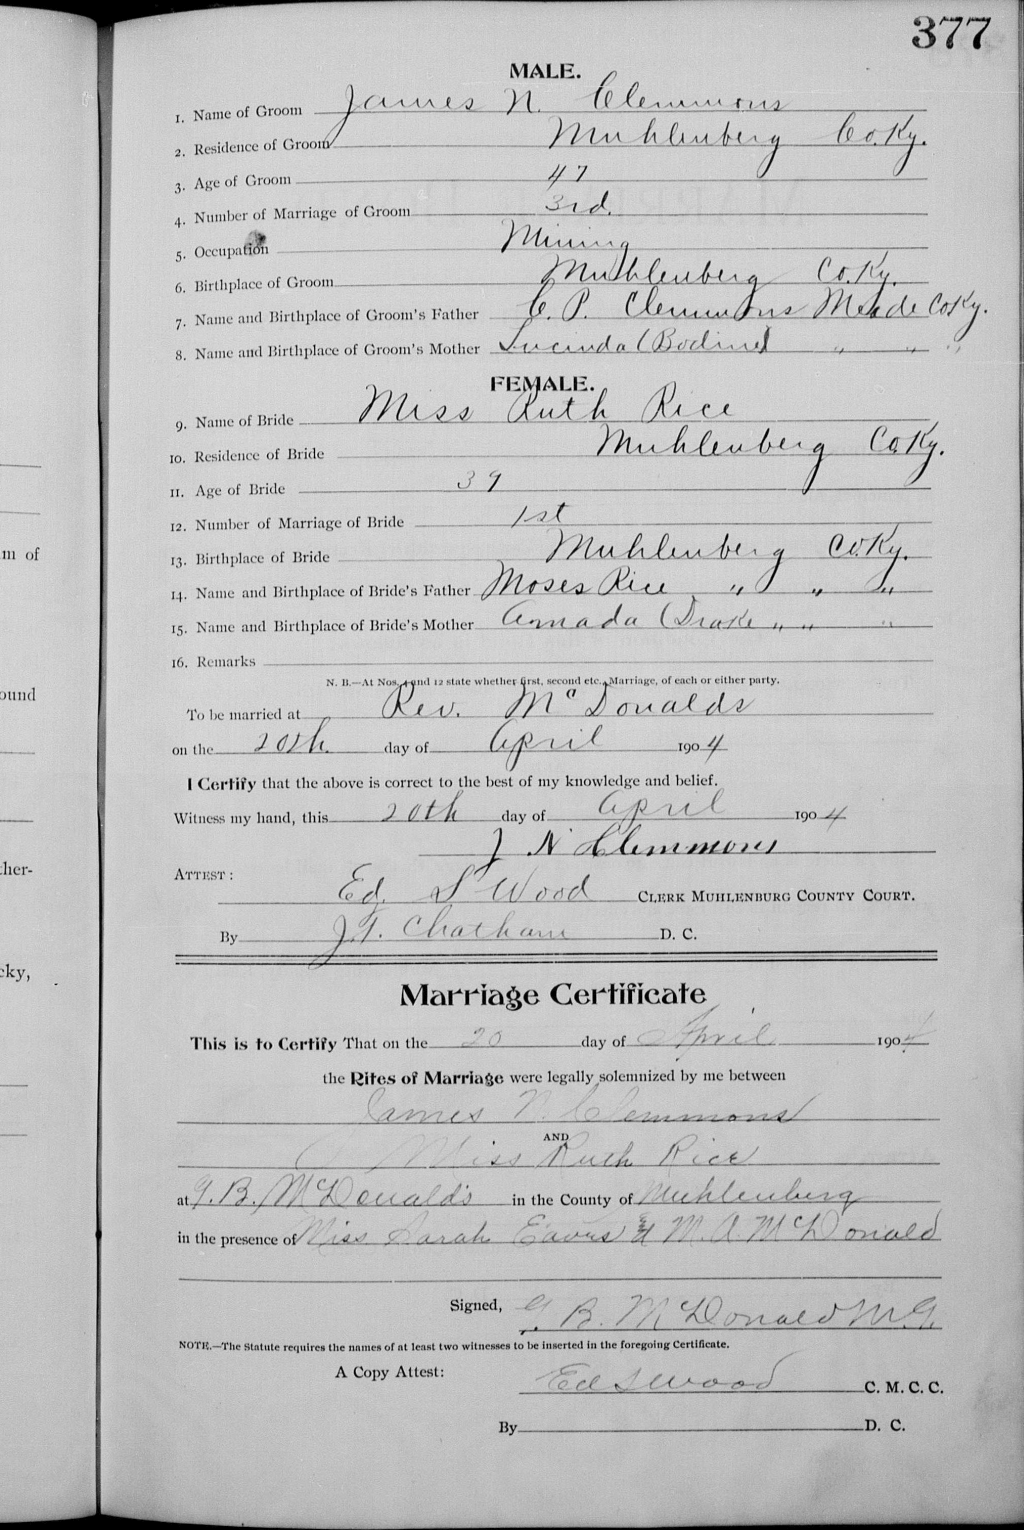 377
MALE.
1. Name of Groom James N. Clemmons
2. Residence of Groom Muhlenberg Co. Ky.
3. Age of Groom 47
4. Number of Marriage of Groom 3rd.
5. Occupation Mining
6. Birthplace of Groom Muhlenberg Co. Ky.
7. Name and Birthplace of Groom's Father C. P. Clemmons Meade Co Ky.
8. Name and Birthplace of Groom's Mother Lucinda (Bodine) " " "
FEMALE.
9. Name of Bride Miss Ruth Rice
10. Residence of Bride Muhlenberg Co. Ky.
11. Age of Bride 39
12. Number of Marriage of Bride 1st
13. Birthplace of Bride Muhlenberg Co. Ky.
m of
14. Name and Birthplace of Bride's Father Moses Rice " " "
15. Name and Birthplace of Bride's Mother Amada (Drake " " "
16. Remarks
N. B.—At Nos. 4 and 12 state whether first, second etc., Marriage, of each or either party.
ound
To be married at Rev. McDonalds
on the 20th. day of April 1904
I Certify that the above is correct to the best of my knowledge and belief.
Witness my hand, this 20th day of April 1904
J N Clemmons
ther-
ATTEST:
Ed. S Wood CLERK MUHLENBURG COUNTY COURT.
By J. T. Chatham D. C.
cky,
Marriage Certificate
This is to Certify That on the 20 day of April 1904
the Rites of Marriage were legally solemnized by me between
James N. Clemmons
AND
Miss Ruth Rice
at G. B. McDonald's in the County of Muhlenberg
in the presence of Miss Sarah Eaves & M. A. McDonald
Signed, G. B. McDonald M.G.
NOTE.—The Statute requires the names of at least two witnesses to be inserted in the foregoing Certificate.
A Copy Attest:
Ed S Wood C. M. C. C.
By D. C.